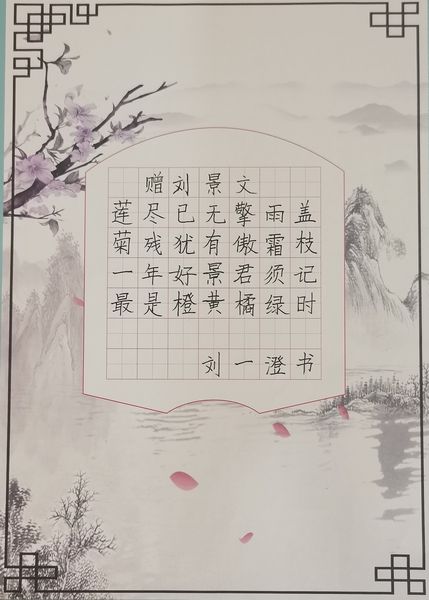 赠刘景文
莲尽已无擎雨盖
菊残犹有傲霜枝
一年好景君须记
最是橙黄橘绿时
刘一澄书